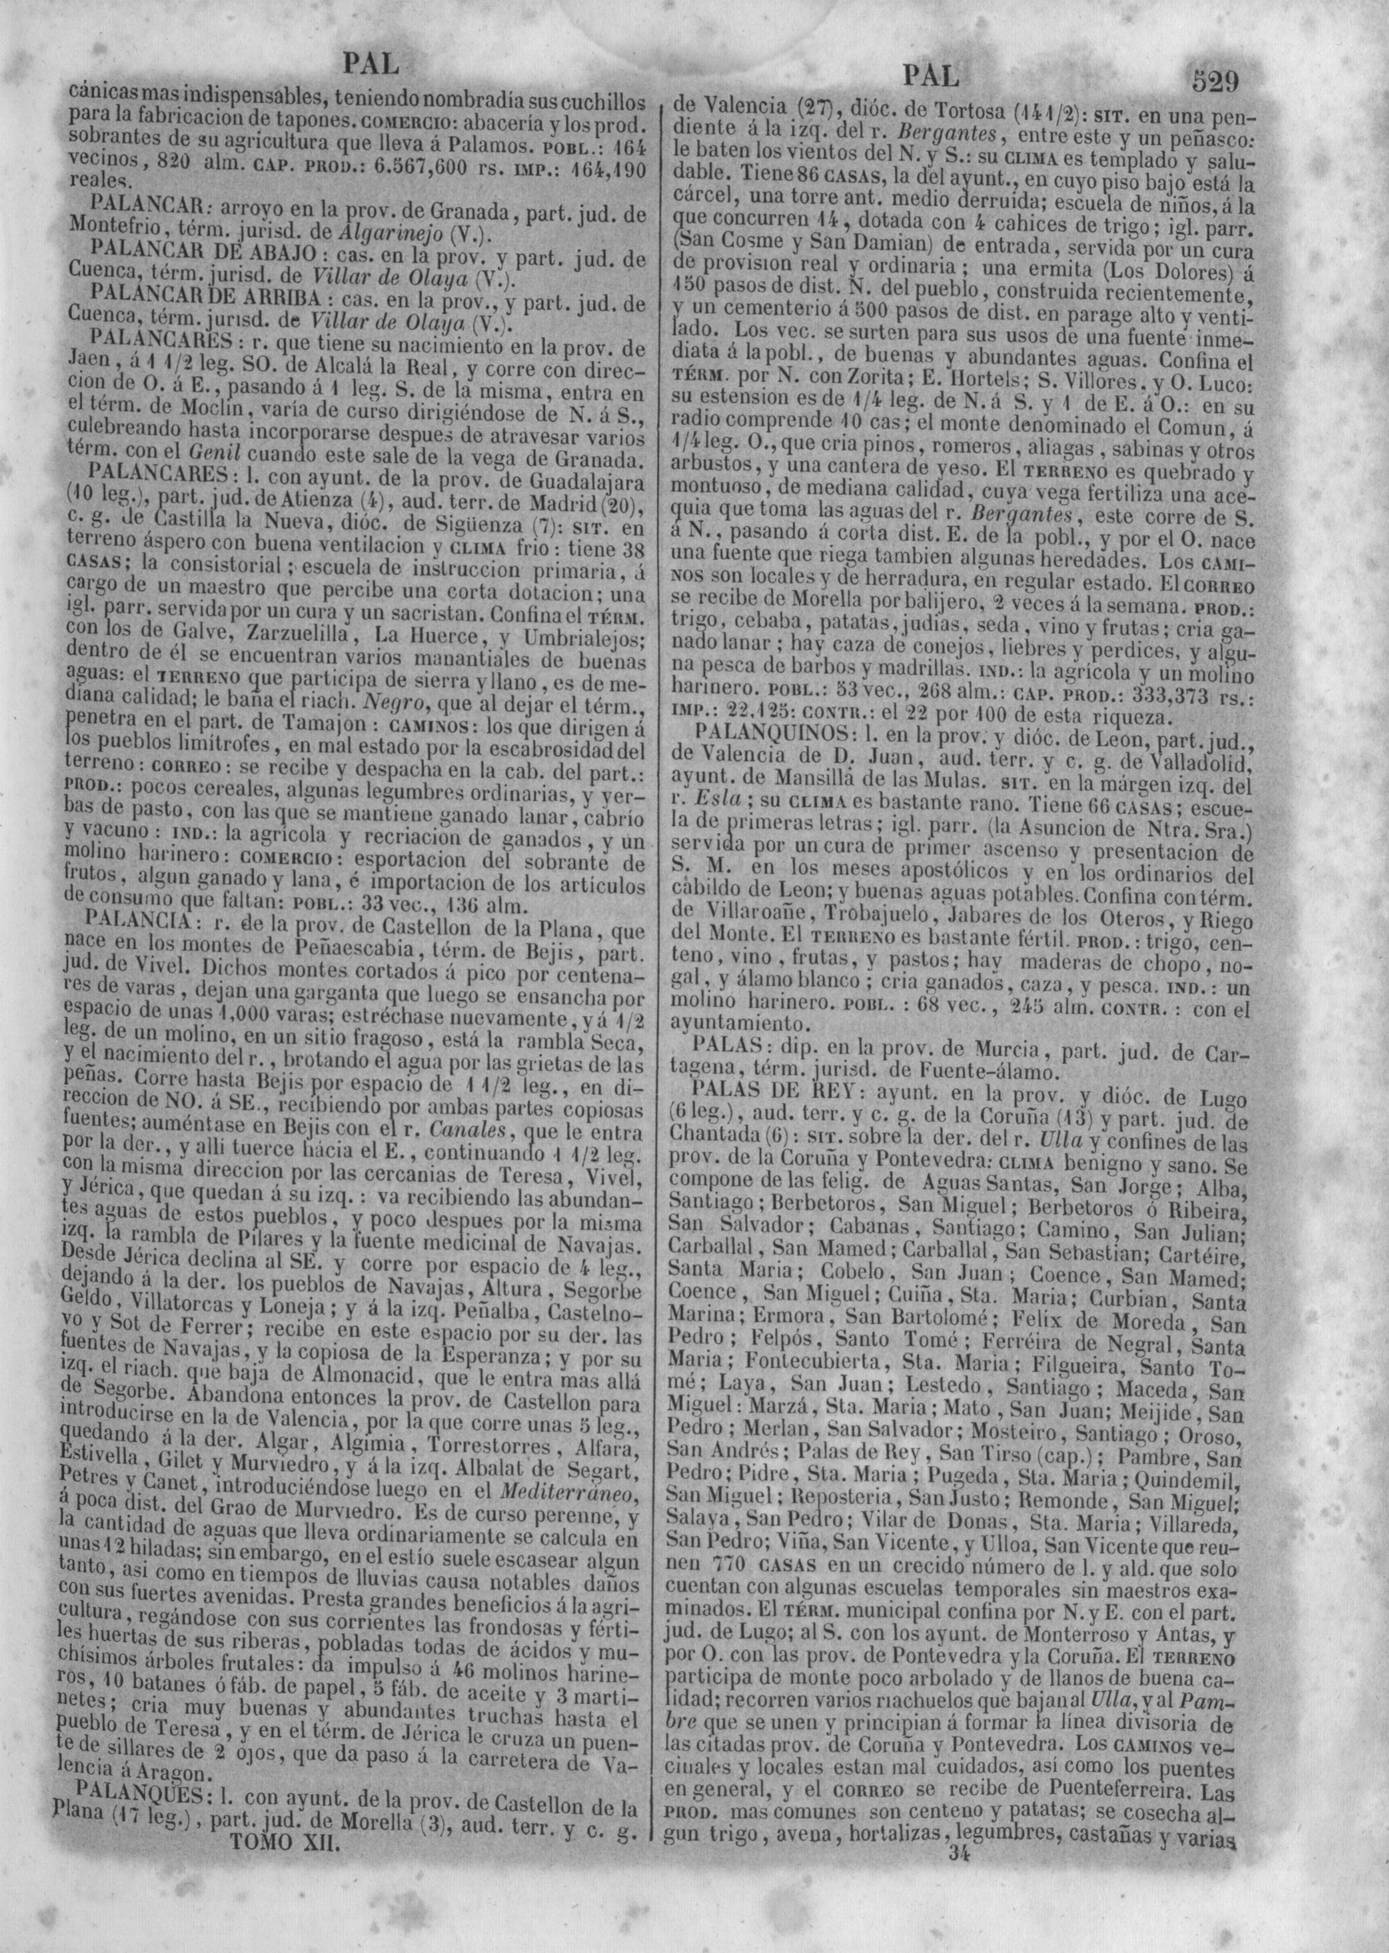 PAL
cánicas mas indispensables, teniendo nombradía sus cuchillos
para la fabricacion de tapones. COMERCIO: abacería y los prod.
sobrantes de su agricultura que lleva á Palamos. POBL.: 164
vecinos, 820 alm. CAP. PROD.: 6.567,600 rs. IMP.: 164,190
reales.
PALANCAR: arroyo en la prov. de Granada, part. jud. de
Montefrio, térm. jurisd. de Algarinejo (V.).
PALANCAR DE ABAJO: cas. en la prov. y part. jud. de
Cuenca, térm. jurisd. de Villar de Olaya (V.).
PALANCAR DE ARRIBA: cas. en la prov., y part. jud. de
Cuenca, térm. jurisd. de Villar de Olaya (V.).
PALANCARES: r. que tiene su nacimiento en la prov. de
Jaen, á 1 1/2 leg. SO. de Alcalá la Real, y corre con direc-
cion de O. á E., pasando á 1 leg. S. de la misma, entra en
el térm. de Moclin, varía de curso dirigiéndose de N. á S.,
culebreando hasta incorporarse despues de atravesar varios
térm. con el Genil cuando este sale de la vega de Granada.
PALANCARES: l. con ayunt. de la prov. de Guadalajara
(10 leg.), part. jud. de Atienza (4), aud. terr. de Madrid (20),
c. g. de Castilla la Nueva, dióc. de Sigüenza (7): SIT. en
terreno áspero con buena ventilacion y CLIMA frio: tiene 38
CASAS; la consistorial; escuela de instruccion primaria, á
cargo de un maestro que percibe una corta dotacion; una
igl. parr. servida por un cura y un sacristan. Confina el TÉRM.
con los de Galve, Zarzuelilla, La Huerce, y Umbrialejos;
dentro de él se encuentran varios manantiales de buenas
aguas: el TERRENO que participa de sierra y llano, es de me-
diana calidad; le baña el riach. Negro, que al dejar el térm.,
penetra en el part. de Tamajon: CAMINOS: los que dirigen á
los pueblos limítrofes, en mal estado por la escabrosidad del
terreno: CORREO: se recibe y despacha en la cab. del part.:
PROD.: pocos cereales, algunas legumbres ordinarias, y yer-
bas de pasto, con las que se mantiene ganado lanar, cabrío
y vacuno: IND.: la agrícola y recriacion de ganados, y un
molino harinero: COMERCIO: esportacion del sobrante de
frutos, algun ganado y lana, é importacion de los artículos
de consumo que faltan: POBL.: 33 vec., 136 alm.
PALANCIA: r. de la prov. de Castellon de la Plana, que
nace en los montes de Peñaescabia, térm. de Bejis, part.
jud. de Vivel. Dichos montes cortados á pico por centena-
res de varas, dejan una garganta que luego se ensancha por
espacio de unas 1,000 varas; estréchase nuevamente, y á 1/2
leg. de un molino, en un sitio fragoso, está la rambla Seca,
y el nacimiento del r., brotando el agua por las grietas de las
peñas. Corre hasta Bejis por espacio de 1 1/2 leg., en di-
reccion de NO. á SE., recibiendo por ambas partes copiosas
fuentes; auméntase en Bejis con el r. Canales, que le entra
por la der., y alli tuerce hácia el E., continuando 1 1/2 leg.
con la misma direccion por las cercanias de Teresa, Vivel,
y Jérica, que quedan á su izq.: va recibiendo las abundan-
tes aguas de estos pueblos, y poco despues por la misma
izq. la rambla de Pilares y la fuente medicinal de Navajas.
Desde Jérica declina al SE. y corre por espacio de 4 leg.,
dejando á la der. los pueblos de Navajas, Altura, Segorbe
Geldo, Villatorcas y Loneja; y á la izq. Peñalba, Castelno-
vo y Sot de Ferrer; recibe en este espacio por su der. las
fuentes de Navajas, y la copiosa de la Esperanza; y por su
izq. el riach. que baja de Almonacid, que le entra mas allá
de Segorbe. Abandona entonces la prov. de Castellon para
introducirse en la de Valencia, por la que corre unas 5 leg.,
quedando á la der. Algar, Algimia, Torrestorres, Alfara,
Estivella, Gilet y Murviedro, y á la izq. Albalat de Segart,
Petres y Canet, introduciéndose luego en el Mediterráneo,
á poca dist. del Grao de Murviedro. Es de curso perenne, y
la cantidad de aguas que lleva ordinariamente se calcula en
unas 12 hiladas; sin embargo, en el estío suele escasear algun
tanto, asi como en tiempos de lluvias causa notables daños
con sus fuertes avenidas. Presta grandes beneficios á la agri-
cultura, regándose con sus corrientes las frondosas y férti-
les huertas de sus riberas, pobladas todas de ácidos y mu-
chísimos árboles frutales: da impulso á 46 molinos harine-
ros, 10 batanes ó fáb. de papel, 5 fáb. de aceite y 3 marti-
netes; cria muy buenas y abundantes truchas hasta el
pueblo de Teresa, y en el térm. de Jérica le cruza un puen-
te de sillares de 2 ojos, que da paso á la carretera de Va-
lencia á Aragon.
PALANQUES: l. con ayunt. de la prov. de Castellon de la
Plana (17 leg.), part. jud. de Morella (3), aud. terr. y c. g.
TOMO XII.
PAL 529
de Valencia (27), dióc. de Tortosa (14 1/2): SIT. en una pen-
diente á la izq. del r. Bergantes, entre este y un peñasco:
le baten los vientos del N. y S.: su CLIMA es templado y salu-
dable. Tiene 86 CASAS, la del ayunt., en cuyo piso bajo está la
cárcel, una torre ant. medio derruida; escuela de niños, á la
que concurren 14, dotada con 4 cahices de trigo; igl. parr.
(San Cosme y San Damian) de entrada, servida por un cura
de provision real y ordinaria; una ermita (Los Dolores) á
150 pasos de dist. N. del pueblo, construida recientemente,
y un cementerio á 500 pasos de dist. en parage alto y venti-
lado. Los vec. se surten para sus usos de una fuente inme-
diata á la pobl., de buenas y abundantes aguas. Confina el
TÉRM. por N. con Zorita; E. Hortels; S. Villores, y O. Luco:
su estension es de 1/4 leg. de N. á S. y 1 de E. á O.: en su
radio comprende 10 cas; el monte denominado el Comun, á
1/4 leg. O., que cria pinos, romeros, aliagas, sabinas y otros
arbustos, y una cantera de yeso. El TERRENO es quebrado y
montuoso, de mediana calidad, cuya vega fertiliza una ace-
quia que toma las aguas del r. Bergantes, este corre de S.
á N., pasando á corta dist. E. de la pobl., y por el O. nace
una fuente que riega tambien algunas heredades. Los CAMI-
NOS son locales y de herradura, en regular estado. El CORREO
se recibe de Morella por balijero, 2 veces á la semana. PROD.:
trigo, cebaba, patatas, judias, seda, vino y frutas; cria ga-
nado lanar; hay caza de conejos, liebres y perdices, y algu-
na pesca de barbos y madrillas. IND.: la agrícola y un molino
harinero. POBL.: 53 vec., 268 alm.: CAP. PROD.: 333,373 rs.:
IMP.: 22,125: CONTR.: el 22 por 100 de esta riqueza.
PALANQUINOS: l. en la prov. y dióc. de Leon, part. jud.,
de Valencia de D. Juan, aud. terr. y c. g. de Valladolid,
ayunt. de Mansilla de las Mulas. SIT. en la márgen izq. del
r. Esla; su CLIMA es bastante rano. Tiene 66 CASAS; escue-
la de primeras letras; igl. parr. (la Asuncion de Ntra. Sra.)
servida por un cura de primer ascenso y presentacion de
S. M. en los meses apostólicos y en los ordinarios del
cabildo de Leon; y buenas aguas potables. Confina con térm.
de Villaroañe, Trobajuelo, Jabares de los Oteros, y Riego
del Monte. El TERRENO es bastante fértil. PROD.: trigo, cen-
teno, vino, frutas, y pastos; hay maderas de chopo, no-
gal, y álamo blanco; cria ganados, caza, y pesca. IND.: un
molino harinero. POBL.: 68 vec., 245 alm. CONTR.: con el
ayuntamiento.
PALAS: dip. en la prov. de Murcia, part. jud. de Car-
tagena, térm. jurisd. de Fuente-álamo.
PALAS DE REY: ayunt. en la prov. y dióc. de Lugo
(6 leg.), aud. terr. y c. g. de la Coruña (13) y part. jud. de
Chantada (6): SIT. sobre la der. del r. Ulla y confines de las
prov. de la Coruña y Pontevedra: CLIMA benigno y sano. Se
compone de las felig. de Aguas Santas, San Jorge; Alba,
Santiago; Berbetoros, San Miguel; Berbetoros ó Ribeira,
San Salvador; Cabanas, Santiago; Camino, San Julian;
Carballal, San Mamed; Carballal, San Sebastian; Cartéire,
Santa Maria; Cobelo, San Juan; Coence, San Mamed;
Coence, San Miguel; Cuiña, Sta. Maria; Curbian, Santa
Marina; Ermora, San Bartolomé; Felix de Moreda, San
Pedro; Felpós, Santo Tomé; Ferréira de Negral, Santa
Maria; Fontecubierta, Sta. Maria; Filgueira, Santo To-
mé; Laya, San Juan; Lestedo, Santiago; Maceda, San
Miguel: Marzá, Sta. Maria; Mato, San Juan; Meijide, San
Pedro; Merlan, San Salvador; Mosteiro, Santiago; Oroso,
San Andrés; Palas de Rey, San Tirso (cap.); Pambre, San
Pedro; Pidre, Sta. Maria; Pugeda, Sta. Maria; Quindemil,
San Miguel; Reposteria, San Justo; Remonde, San Miguel;
Salaya, San Pedro; Vilar de Donas, Sta. Maria; Villareda,
San Pedro; Viña, San Vicente, y Ulloa, San Vicente que reu-
nen 770 CASAS en un crecido número de l. y ald. que solo
cuentan con algunas escuelas temporales sin maestros exa-
minados. El TÉRM. municipal confina por N. y E. con el part.
jud. de Lugo; al S. con los ayunt. de Monterroso y Antas, y
por O. con las prov. de Pontevedra y la Coruña. El TERRENO
participa de monte poco arbolado y de llanos de buena ca-
lidad; recorren varios riachuelos que bajan al Ulla, y al Pam-
bre que se unen y principian á formar la línea divisoria de
las citadas prov. de Coruña y Pontevedra. Los CAMINOS ve-
cinales y locales estan mal cuidados, asi como los puentes
en general, y el CORREO se recibe de Puenteferreira. Las
PROD. mas comunes son centeno y patatas; se cosecha al-
gun trigo, avena, hortalizas, legumbres, castañas y varias
34